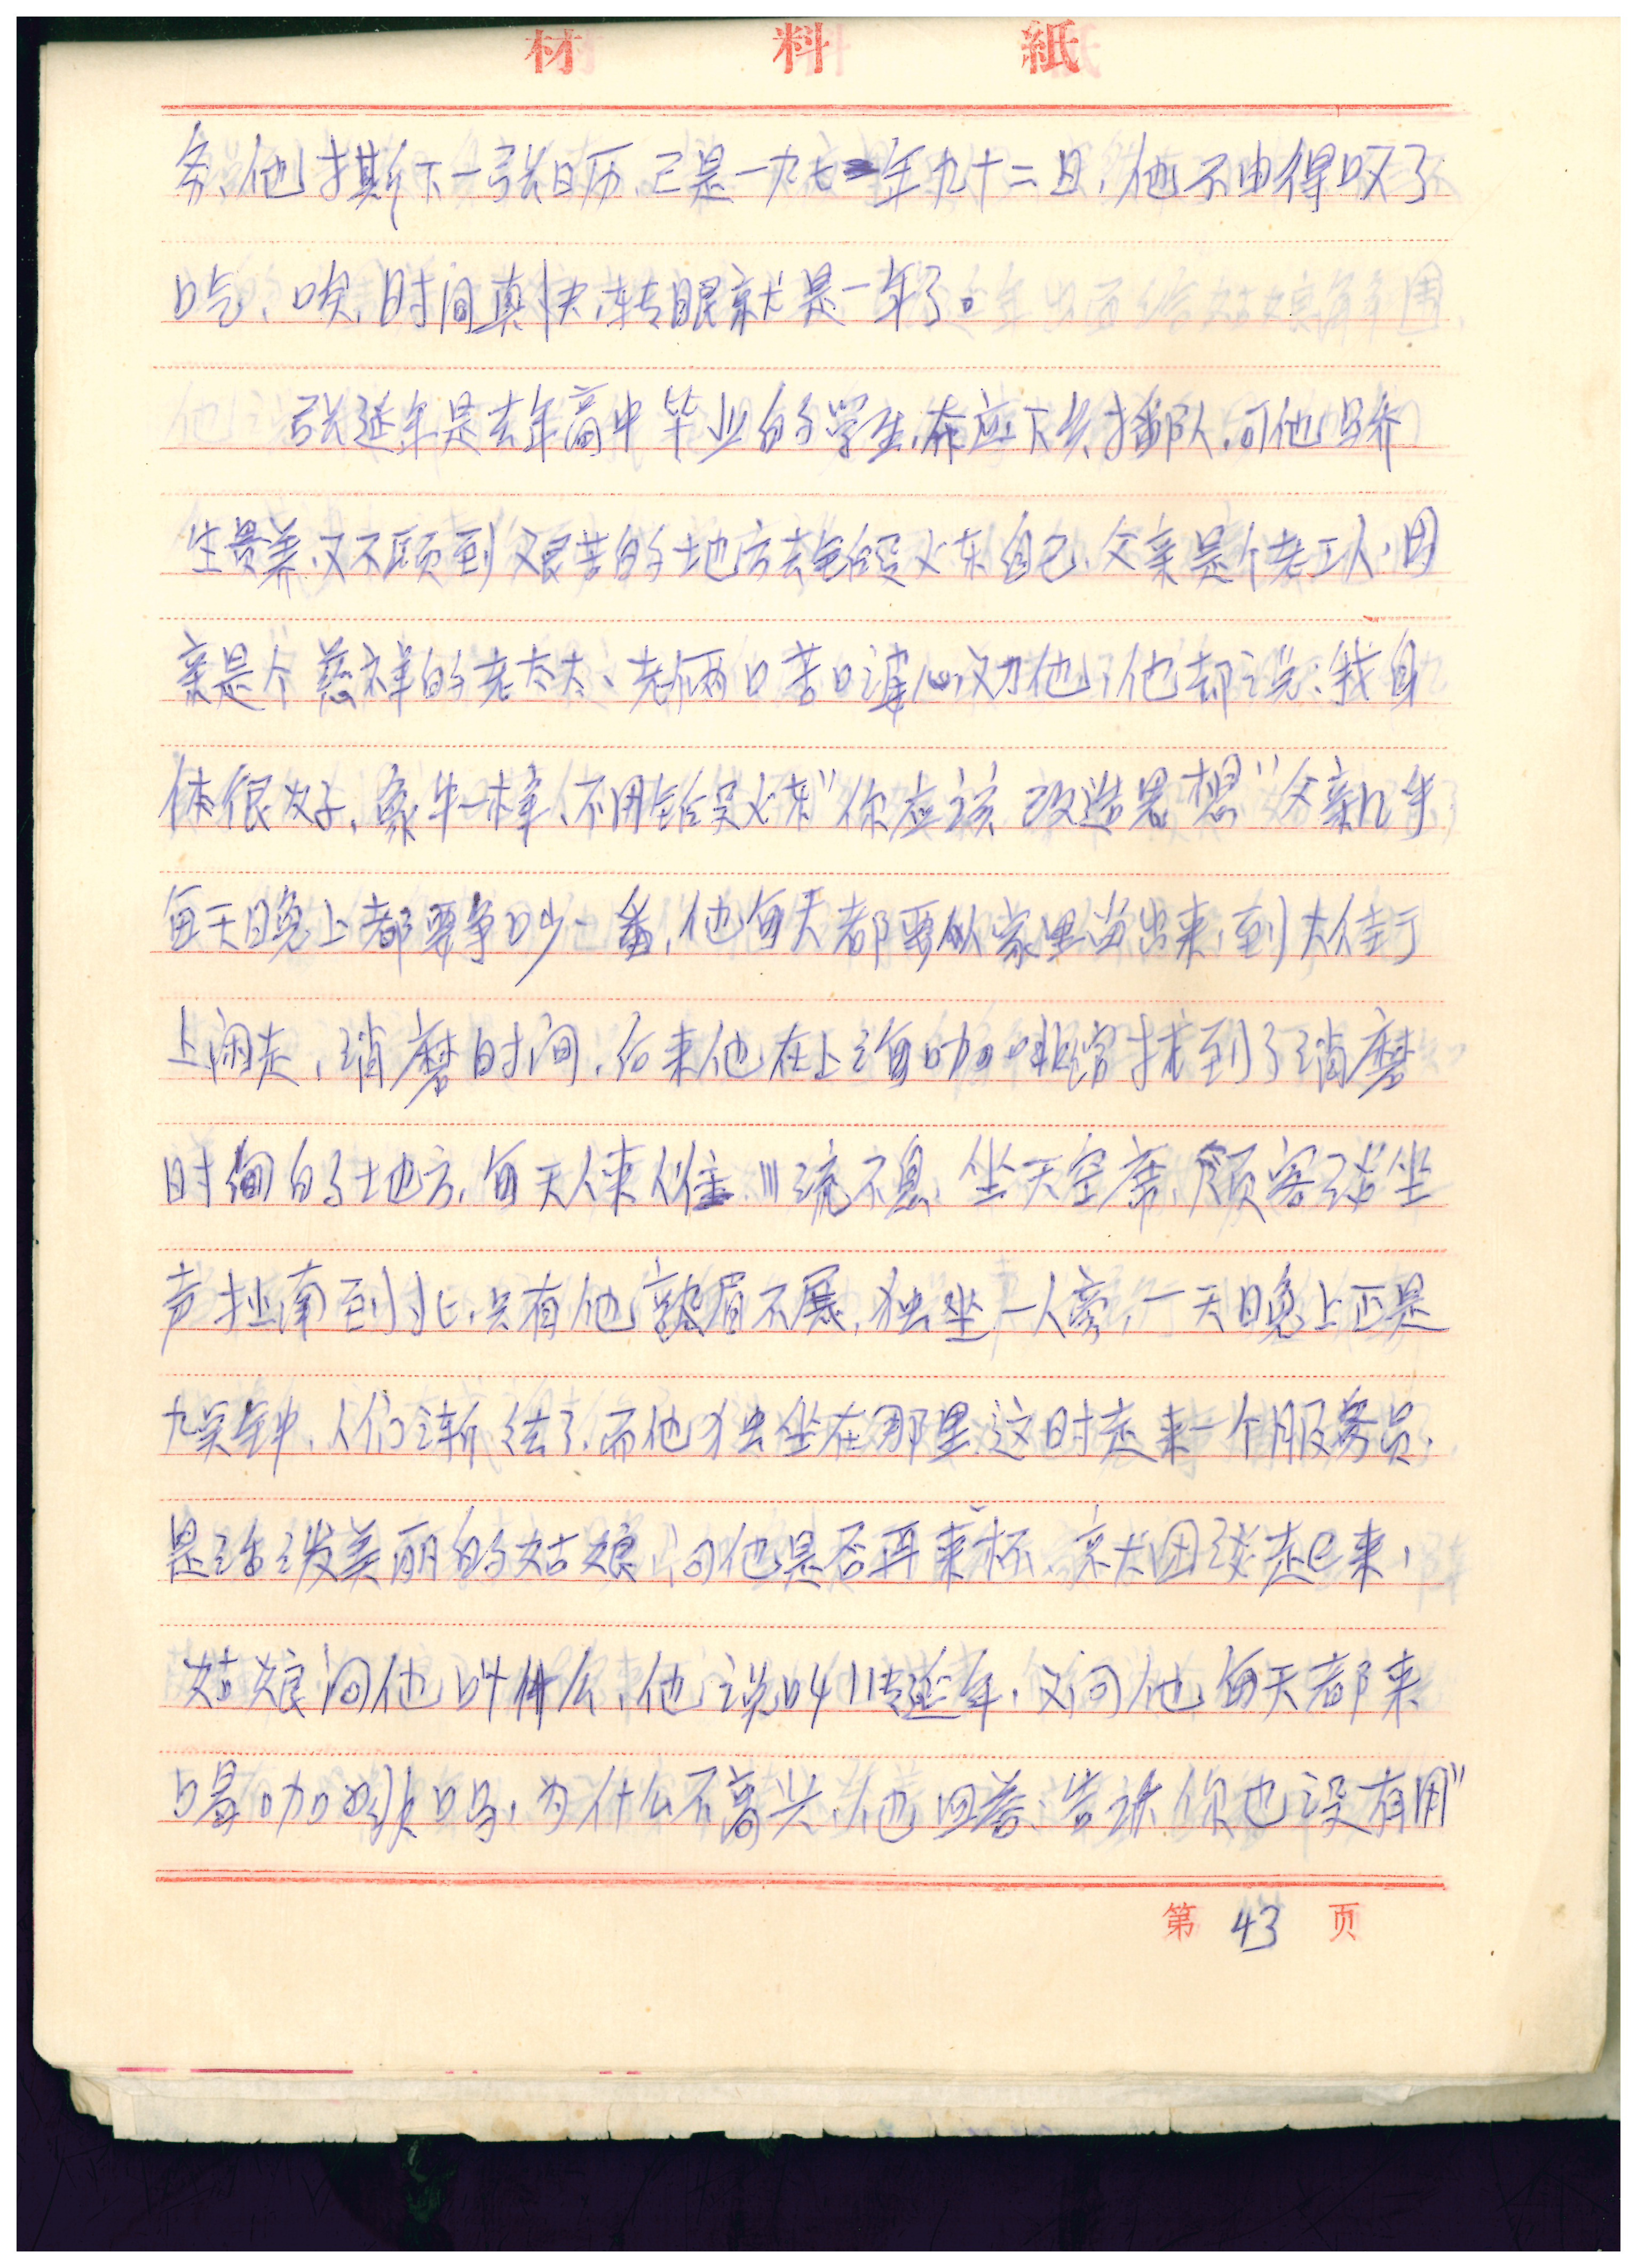 材料紙
务、他撕下一张日历、已是一九七一年九十二日，他不由得叹了
口气、唉，时间真快，转眼就是一年了。
张延年是去年高中毕业的学生，本应下乡插队，可他娇
生贵养，又不愿到艰苦的地方去锻炼自己、父亲是个老工人，母
亲是个慈祥的老太太、老俩口苦口婆心劝他，他却说：我身
体很好，象牛一样、不用锻炼"你应该改造思想"父亲几乎
每天晚上都要争吵一番，他每天都要从家里出来，到大街
上闲走，消磨时间，后来他在上海咖啡馆找到了消磨
时间的地方，每天人来人往，川流不息，坐无空席，顾客谈坐
声扯南到北，只有他愁眉不展，独坐一人旁，一天晚上正是
九点钟，人们渐结了，而他独坐在那里，这时走来一个服务员，
是活泼美丽的姑娘，问他是否再来杯，亲犬因谈起来，
姑娘问他叫什么，他说叫张延年，又问他每天都来
喝咖啡吗，为什么不高兴，他回答、告诉你也没有用"
第 43 页